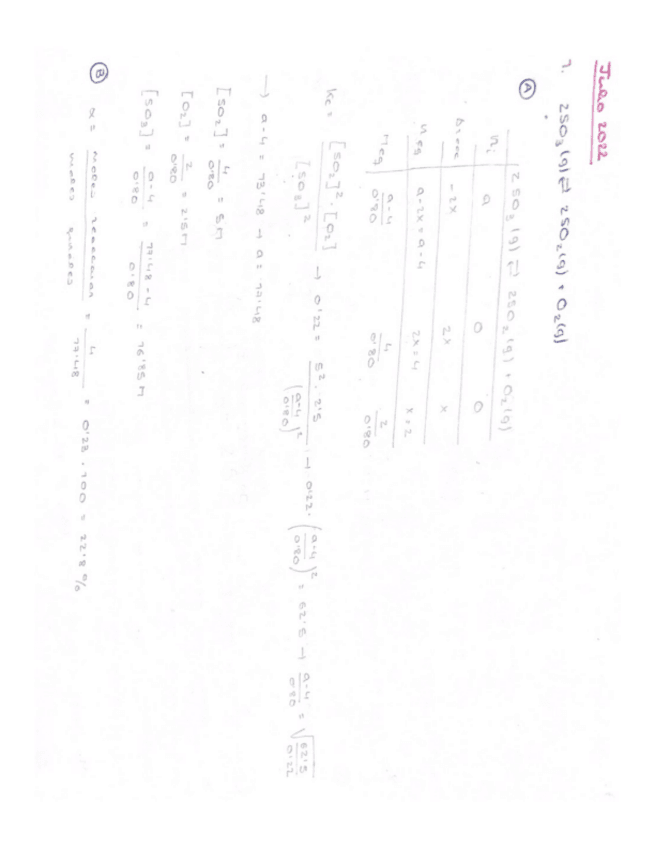 Julio 2022
1. 2SO₃(g) ⇄ 2SO₂(g) + O₂(g)
Ⓐ
2SO₃(g) ⇄ 2SO₂(g) + O₂(g)
ni a 0 0
-2x 2x x
neq a-2x = a-4 2x = 4 x = 2
a-4/0'80 4/0'80 2/0'80
Kc = [SO₂]²·[O₂]/[SO₃]² → 0'22 = 5²·2'5/(a-4/0'80)² → 0'22·(a-4/0'80)² = 62'5 → a-4/0'80 = √62'5/0'22
→ a-4 = 13'48 → a = 17'48
[SO₂] = 4/0'80 = 5M
[O₂] = 2/0'80 = 2'5M
[SO₃] = a-4/0'80 = 17'48-4/0'80 = 16'85M
Ⓑ α = moles reaccionan/moles iniciales = 4/17'48 = 0'28·100 = 22'8%